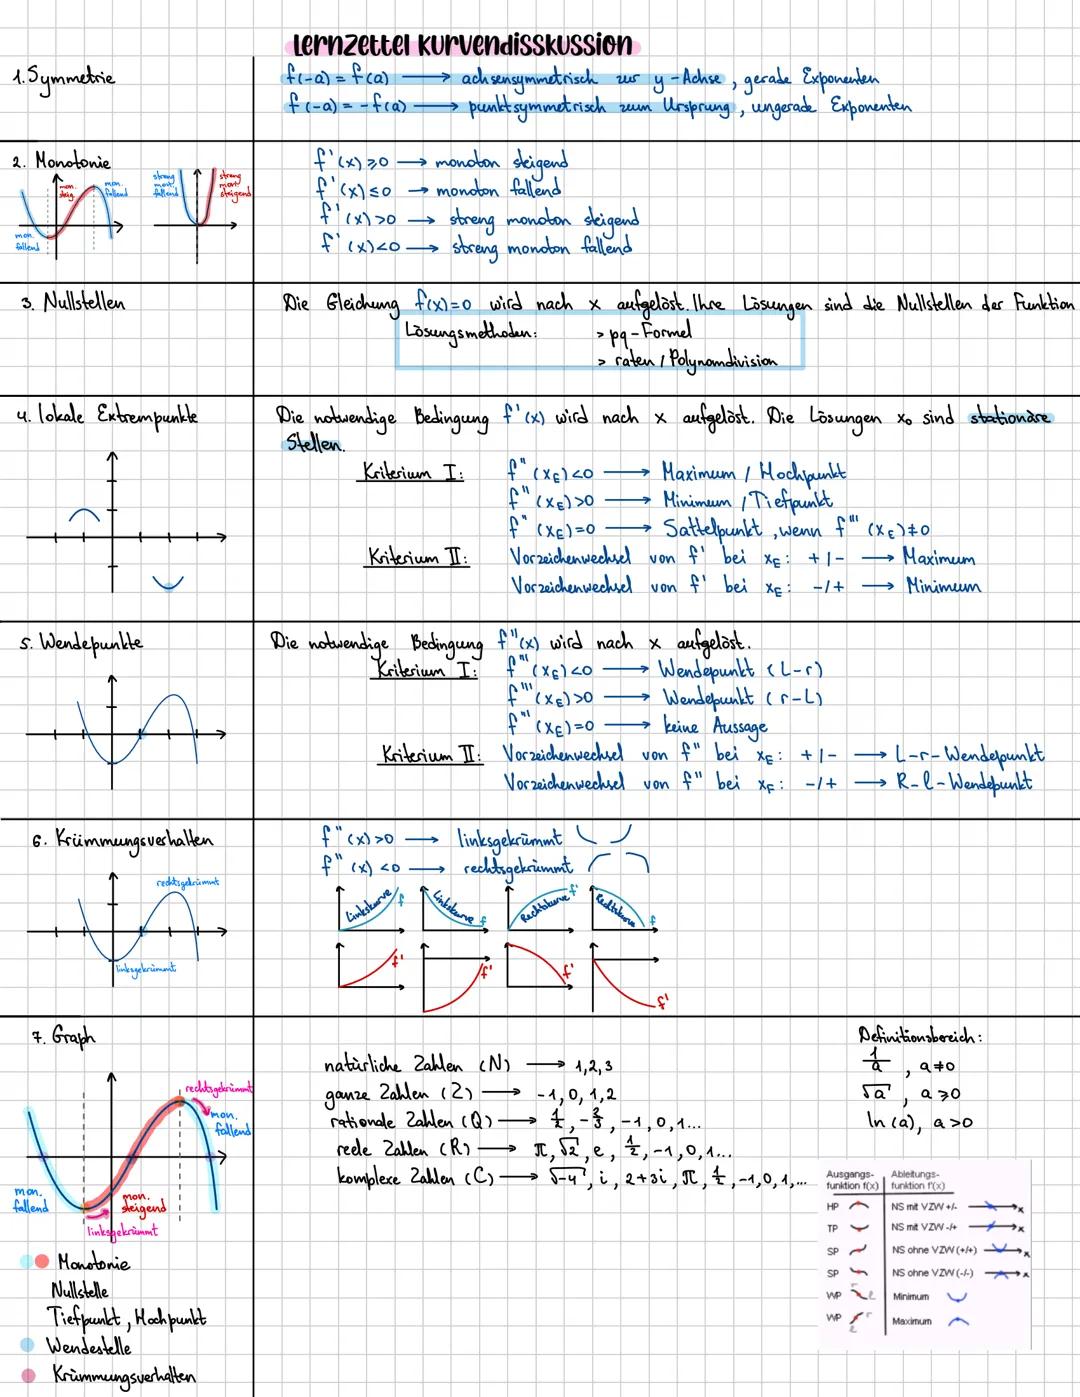 Lernzettel Kurvendisskussion
1. Symmetrie
f(-a) = f(a) → achsensymmetrisch zur y-Achse, gerade Exponenten
f(-a) = -f(a) → punktsymmetrisch zum Ursprung, ungerade Exponenten
2. Monotonie
mon. fallend
mon. steig.
mon. fallend
streng mont. fallend
streng mont. steigend
f'(x) ≥ 0 → monoton steigend
f'(x) ≤ 0 → monoton fallend
f'(x) > 0 → streng monoton steigend
f'(x) < 0 → streng monoton fallend
3. Nullstellen
Die Gleichung f(x)=0 wird nach x aufgelöst. Ihre Lösungen sind die Nullstellen der Funktion
Lösungsmethoden: > pq-Formel
> raten / Polynomdivision
4. lokale Extrempunkte
Die notwendige Bedingung f'(x) wird nach x aufgelöst. Die Lösungen x₀ sind stationäre
Stellen.
Kriterium I: f''(x_E)<0 → Maximum / Hochpunkt
f''(x_E)>0 → Minimum / Tiefpunkt
f''(x_E)=0 → Sattelpunkt, wenn f'''(x_E)≠0
Kriterium II: Vorzeichenwechsel von f' bei x_E: +/- → Maximum
Vorzeichenwechsel von f' bei x_E: -/+ → Minimum
5. Wendepunkte
Die notwendige Bedingung f''(x) wird nach x aufgelöst.
Kriterium I: f'''(x_E)<0 → Wendepunkt (L-r)
f'''(x_E)>0 → Wendepunkt (r-L)
f'''(x_E)=0 → keine Aussage
Kriterium II: Vorzeichenwechsel von f'' bei x_E: +/- → L-r-Wendepunkt
Vorzeichenwechsel von f'' bei x_E: -/+ → R-l-Wendepunkt
6. Krümmungsverhalten
rechtsgekrümmt
linksgekrümmt
f''(x)>0 → linksgekrümmt
f''(x)<0 → rechtsgekrümmt
Linkskurve f
Linkskurve f
Rechtskurve f
Rechtskurve f
f'
f'
f'
f'
7. Graph
rechtsgekrümmt
mon. fallend
mon. fallend
mon. steigend
linksgekrümmt
Monotonie
Nullstelle
Tiefpunkt, Hochpunkt
Wendestelle
Krümmungsverhalten
natürliche Zahlen (N) → 1,2,3
ganze Zahlen (Z) → -1, 0, 1, 2
rationale Zahlen (Q) → 1/2, -2/3, -1, 0, 1...
reele Zahlen (R) → π, √2, e, 1/2, -1, 0, 1...
komplexe Zahlen (C) → √-4, i, 2+3i, π, 1/2, -1, 0, 1, ...
Definitionsbereich:
1/a, a≠0
√a, a≥0
ln(a), a>0
Ausgangs- Ableitungs-
funktion f(x) funktion f'(x)
HP NS mit VZW +/- x
TP NS mit VZW -/+ x
SP NS ohne VZW (+/+) x
SP NS ohne VZW (-/-) x
WP r l Minimum
WP l r Maximum